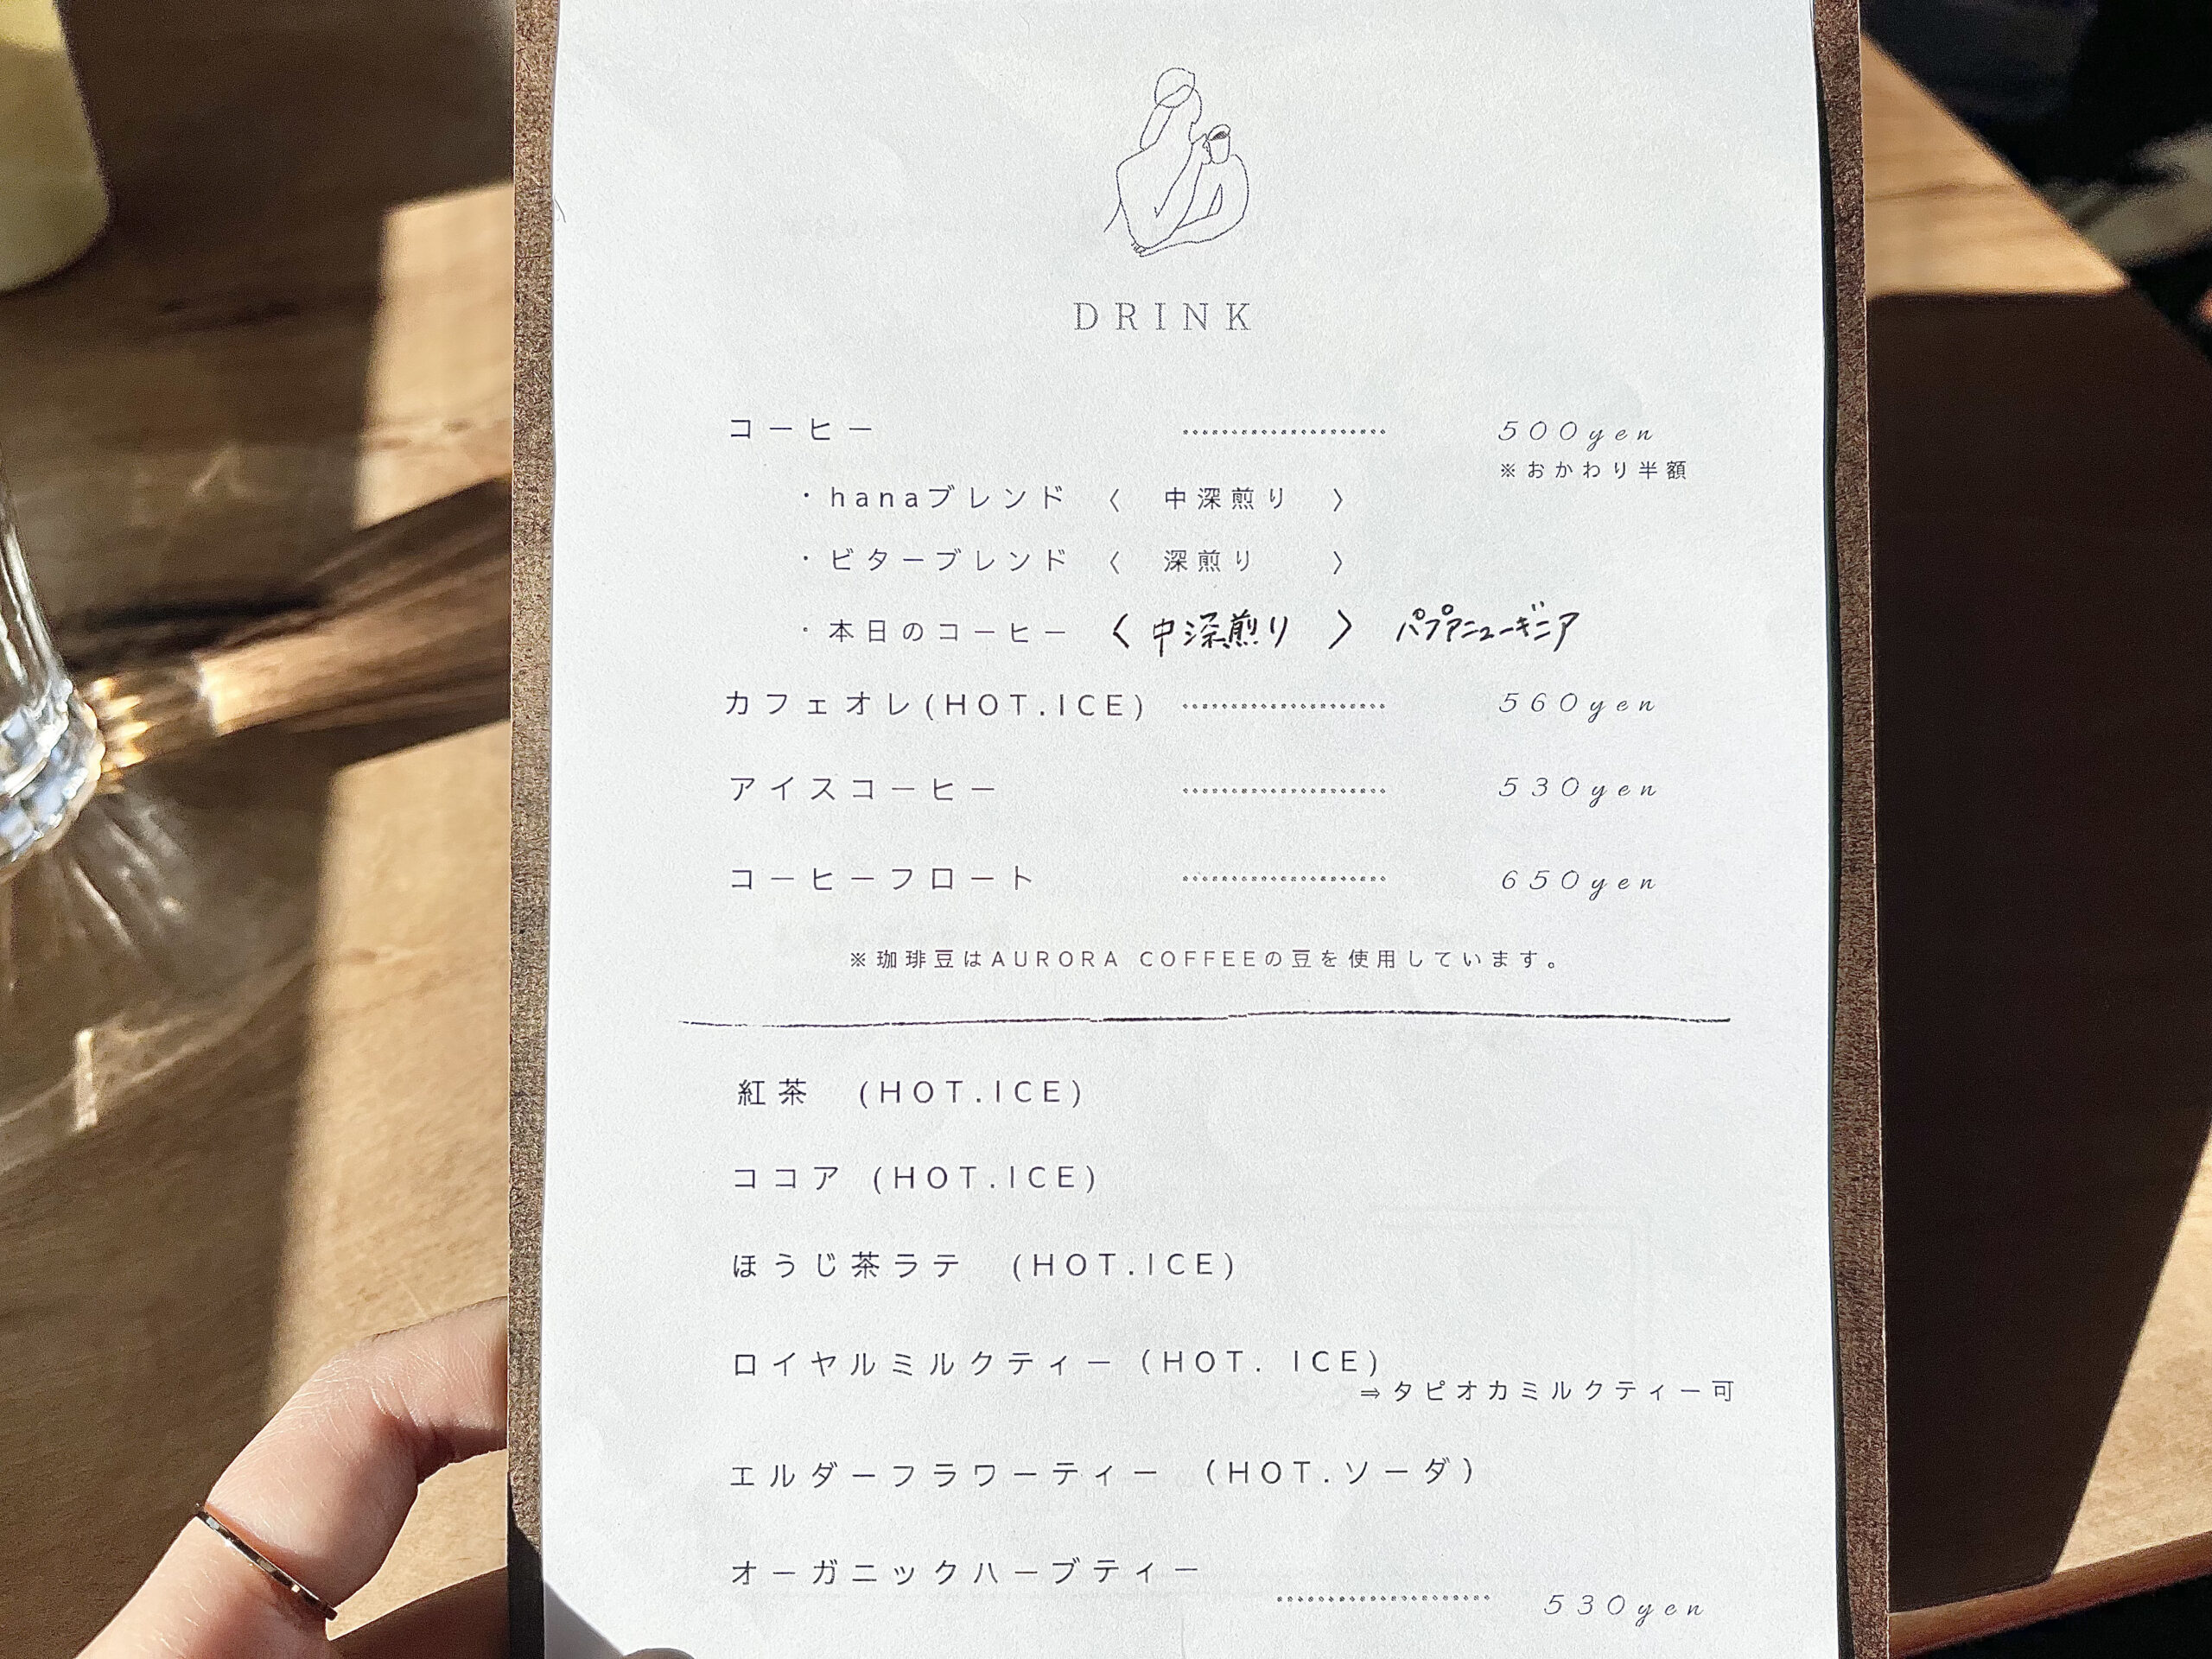 DRINK
コーヒー 500yen
※おかわり半額
・hanaブレンド 〈 中深煎り 〉
・ビターブレンド 〈 深煎り 〉
・本日のコーヒー 〈 中深煎り 〉 パプアニューギニア
カフェオレ(HOT.ICE) 560yen
アイスコーヒー 530yen
コーヒーフロート 650yen
※珈琲豆はAURORA COFFEEの豆を使用しています。
紅茶 (HOT.ICE)
ココア (HOT.ICE)
ほうじ茶ラテ (HOT.ICE)
ロイヤルミルクティー (HOT. ICE)
⇒タピオカミルクティー可
エルダーフラワーティー (HOT.ソーダ)
オーガニックハーブティー
530yen